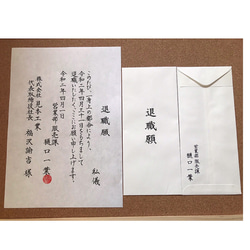 退職願
私儀
このたび、一身上の都合により、
令和二年四月三十一日をもちまして
退職いたしたく、ここにお願い申し上げます。
令和二年四月一日
営業部 販売課
樋口一葉
株式会社 見本工業
代表取締役社長
福沢諭吉 様
退職願
営業部 販売課
樋口一葉